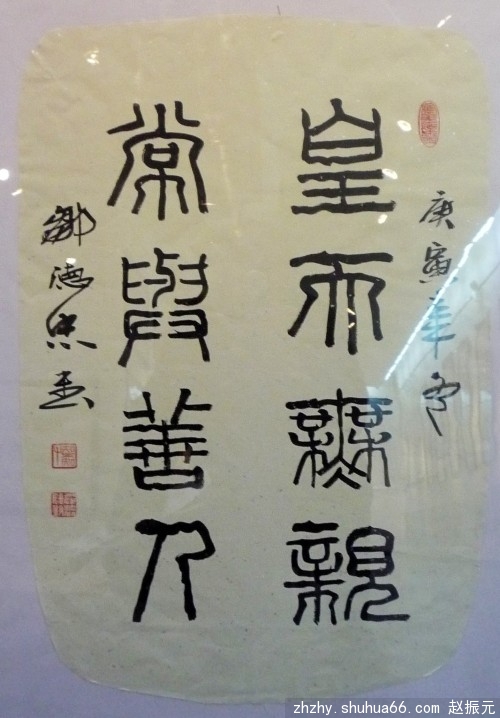 庚寅年
皇天無親
常與善人
鄒德忠书
zhzhy.shuhua66.com 赵振元